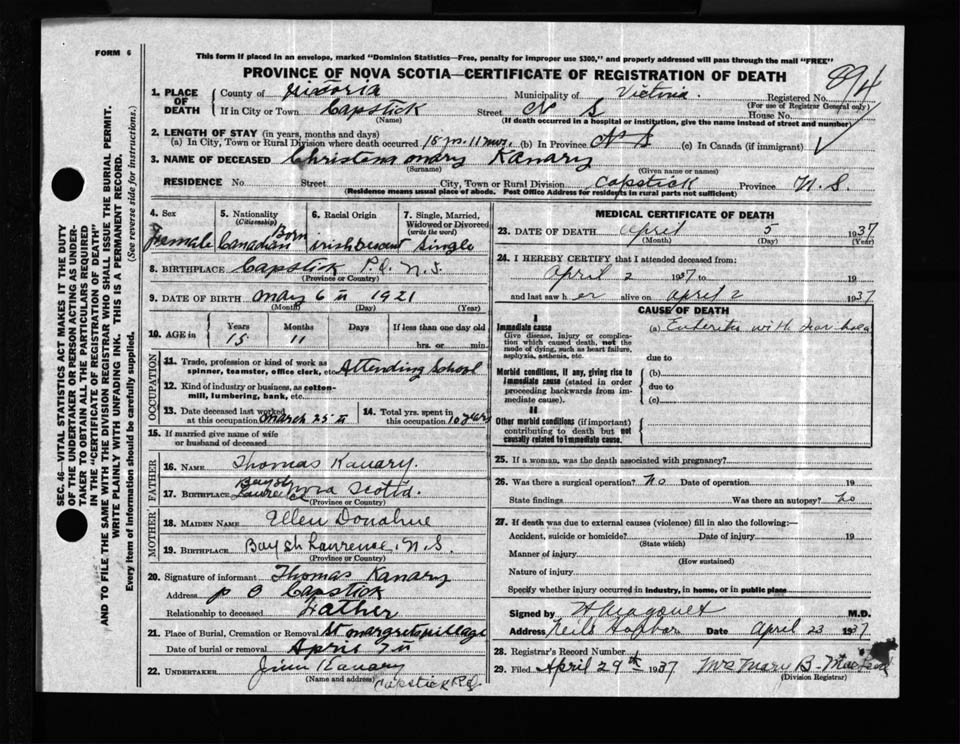 FORM 6
This form if placed in an envelope, marked "Dominion Statistics—Free, penalty for improper use $300," and properly addressed will pass through the mail "FREE"
PROVINCE OF NOVA SCOTIA—CERTIFICATE OF REGISTRATION OF DEATH
894
1. PLACE OF DEATH
County of Victoria Municipality of Victoria. Registered No.
(For use of Registrar General only)
If in City or Town Capstick Street N S House No.
(Name) (If death occurred in a hospital or institution, give the name instead of street and number)
2. LENGTH OF STAY (in years, months and days)
(a) In City, Town or Rural Division where death occurred 15 yrs. 11 mos. (b) In Province N S (c) In Canada (if immigrant)
3. NAME OF DECEASED Christena Mary Kanary
(Surname) (Given name or names)
RESIDENCE No. Street City, Town or Rural Division Capstick Province N. S.
(Residence means usual place of abode. Post Office Address for residents in rural parts not sufficient)
4. Sex Female
5. Nationality (Citizenship) Canadian Born
6. Racial Origin irish Descent
7. Single, Married, Widowed or Divorced (write the word) Single
8. BIRTHPLACE Capstick P.O. N.S.
(Province or Country)
9. DATE OF BIRTH May 6 1921
(Month) (Day) (Year)
10. AGE in Years 15 Months 11 Days If less than one day old hrs. or min.
OCCUPATION
11. Trade, profession or kind of work as spinner, teamster, office clerk, etc. Attending School
12. Kind of industry or business, as cotton-mill, lumbering, bank, etc.
13. Date deceased last worked at this occupation March 25
14. Total yrs. spent in this occupation 10 years
15. If married give name of wife or husband of deceased
FATHER
16. NAME Thomas Kanary.
17. BIRTHPLACE Bay St Lawrence Nova Scotia.
(Province or Country)
MOTHER
18. MAIDEN NAME Ellen Donahue
19. BIRTHPLACE Bay St Lawrence. N.S.
(Province or Country)
20. Signature of informant Thomas Kanary
Address P O Capstick
Relationship to deceased Father
21. Place of Burial, Cremation or Removal St Margrets village
Date of burial or removal April 7
22. UNDERTAKER Jim Kanary
(Name and address) Capstick P.O.
MEDICAL CERTIFICATE OF DEATH
23. DATE OF DEATH April 5 1937
(Month) (Day) (Year)
24. I HEREBY CERTIFY that I attended deceased from:
April 2 1937 to 19
and last saw her alive on April 2 1937
CAUSE OF DEATH
I
Immediate cause (a) Enteritis with
Give disease, injury or complication which caused death, not the mode of dying, such as heart failure, asphyxia, asthenia, etc.
due to
Morbid conditions, if any, giving rise to immediate cause (stated in order proceeding backwards from immediate cause).
(b)
due to
(c)
II
Other morbid conditions (if important) contributing to death but not causally related to immediate cause.
25. If a woman, was the death associated with pregnancy?
26. Was there a surgical operation? No Date of operation 19
State findings Was there an autopsy? No
27. If death was due to external causes (violence) fill in also the following:—
Accident, suicide or homicide? Date of injury 19
(State which)
Manner of injury
(How sustained)
Nature of injury
Specify whether injury occurred in industry, in home, or in public place
Signed by M.D.
Address Neils Harbor Date April 23 1937
28. Registrar's Record Number
29. Filed April 29th 1937 Mrs Mary B.
(Division Registrar)
SEC. 46—VITAL STATISTICS ACT MAKES IT THE DUTY
OF THE UNDERTAKER OR PERSON ACTING AS UNDERTAKER
TO OBTAIN ALL THE PARTICULARS REQUIRED
IN THE "CERTIFICATE OF REGISTRATION OF DEATH"
AND TO FILE THE SAME WITH THE DIVISION REGISTRAR WHO SHALL ISSUE THE BURIAL PERMIT.
WRITE PLAINLY WITH UNFADING INK. THIS IS A PERMANENT RECORD.
Every item of information should be carefully supplied. (See reverse side for instructions.)